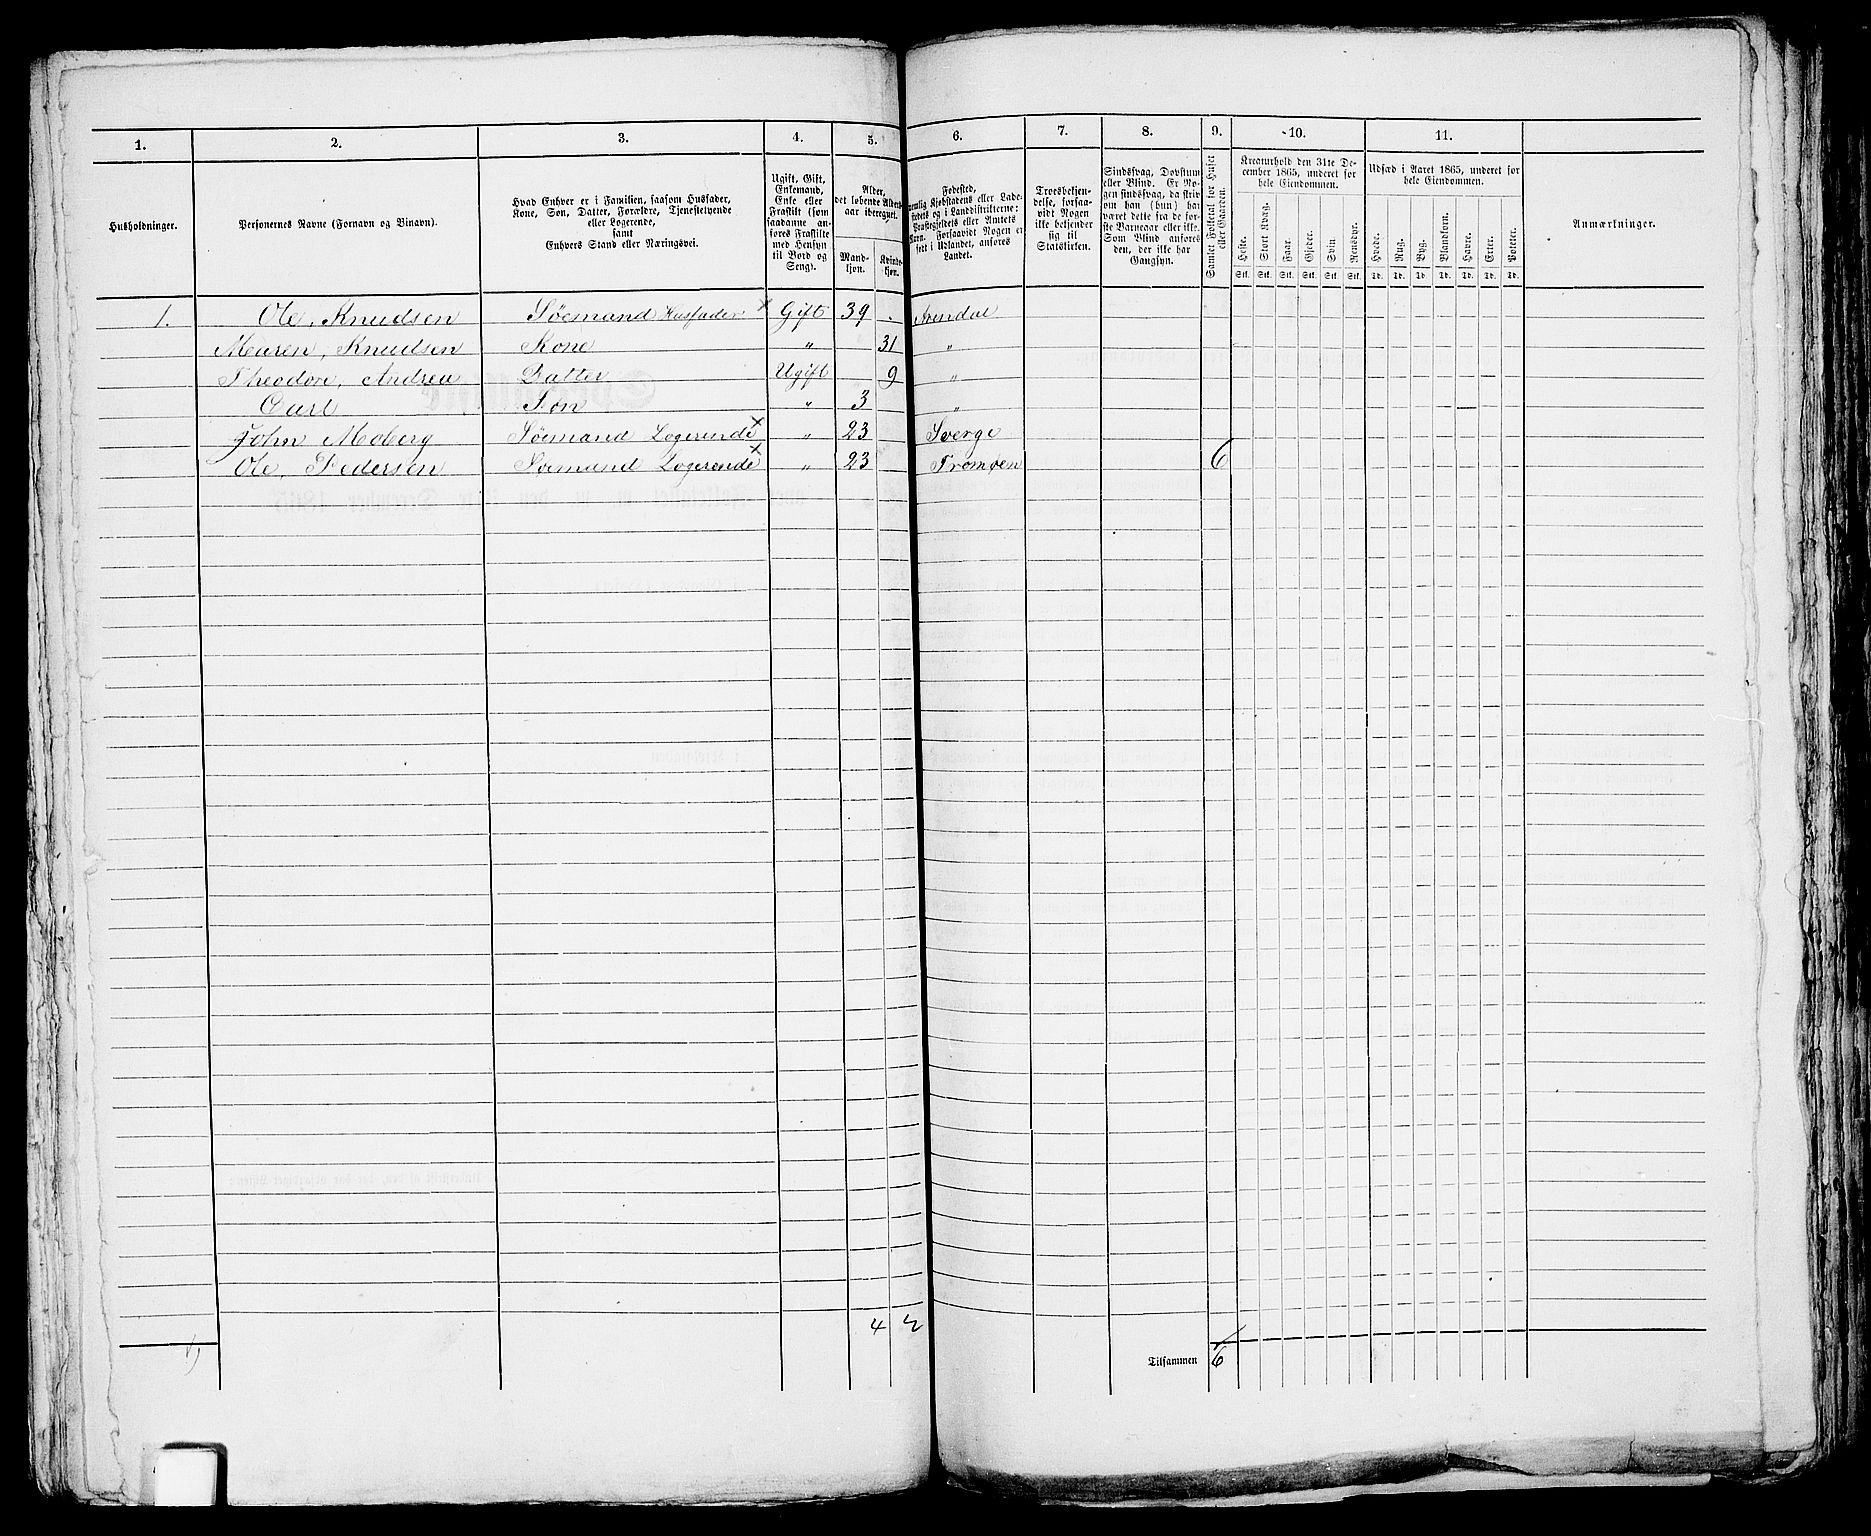 1. 2. 3. 4. 5. 6. 7. 8. 9. 10. 11.
Husholdninger.
Personernes Navne (Fornavn og Binavn).
Hvad Enhver er i Familien, saasom Husfader,
Kone, Søn, Datter, Forældre, Tjenestetyende
eller Logerende,
samt
Enhvers Stand eller Næringsvei.
Ugift, Gift,
Enkemand,
Enke eller
Fraskilt (som
saadanne an-
føres Fraskilte
med Hensyn
til Bord og
Seng).
Alder,
det løbende Alders-
aar iberegnet.
Mand-
kjøn.
Kvinde-
kjøn.
Fødested,
nemlig Kjøbstadens eller Lade-
stedets og i Landdistrikterne:
Præstegjeldets eller Amtets
Navn. Forsaavidt Nogen er
født i Udlandet, anføres
Landet.
Troesbekjen-
delse, forsaa-
vidt Nogen
ikke bekjender
sig til
Statskirken.
Sindssvag, Døvstum
eller Blind. Er No-
gen sindssvag, da skriv
om han (hun) har
været dette fra de før-
ste Barneaar eller ikke.
Som Blind anføres
den, der ikke har
Gangsyn.
Samlet Folketal for Huset
eller Gaarden.
Kreaturhold den 31te De-
cember 1865, underet for
hele Eiendommen.
Heste. Stort Kvæg. Faar. Gjeder. Svin. Rensdyr.
Stk. Stk. Stk. Stk. Stk. Stk.
Udsæd i Aaret 1865, underet for
hele Eiendommen.
Hvede. Rug. Byg. Blandkorn. Havre. Erter. Poteter.
Td. Td. Td. Td. Td. Td. Td.
Anmærkninger.
1. Ole, Knudsen Søemand Husfader × Gift 39 . Arendal
Maren, Knudsen Kone " 31 "
Theodore, Andrea Datter Ugift 9 "
Carl Søn " 3 "
John Moberg Søemand Logerende × " 23 Sverge
Ole, Pedersen Søemand Logerende × " 23 Tromøen 6
4 2
Tilsammen 6